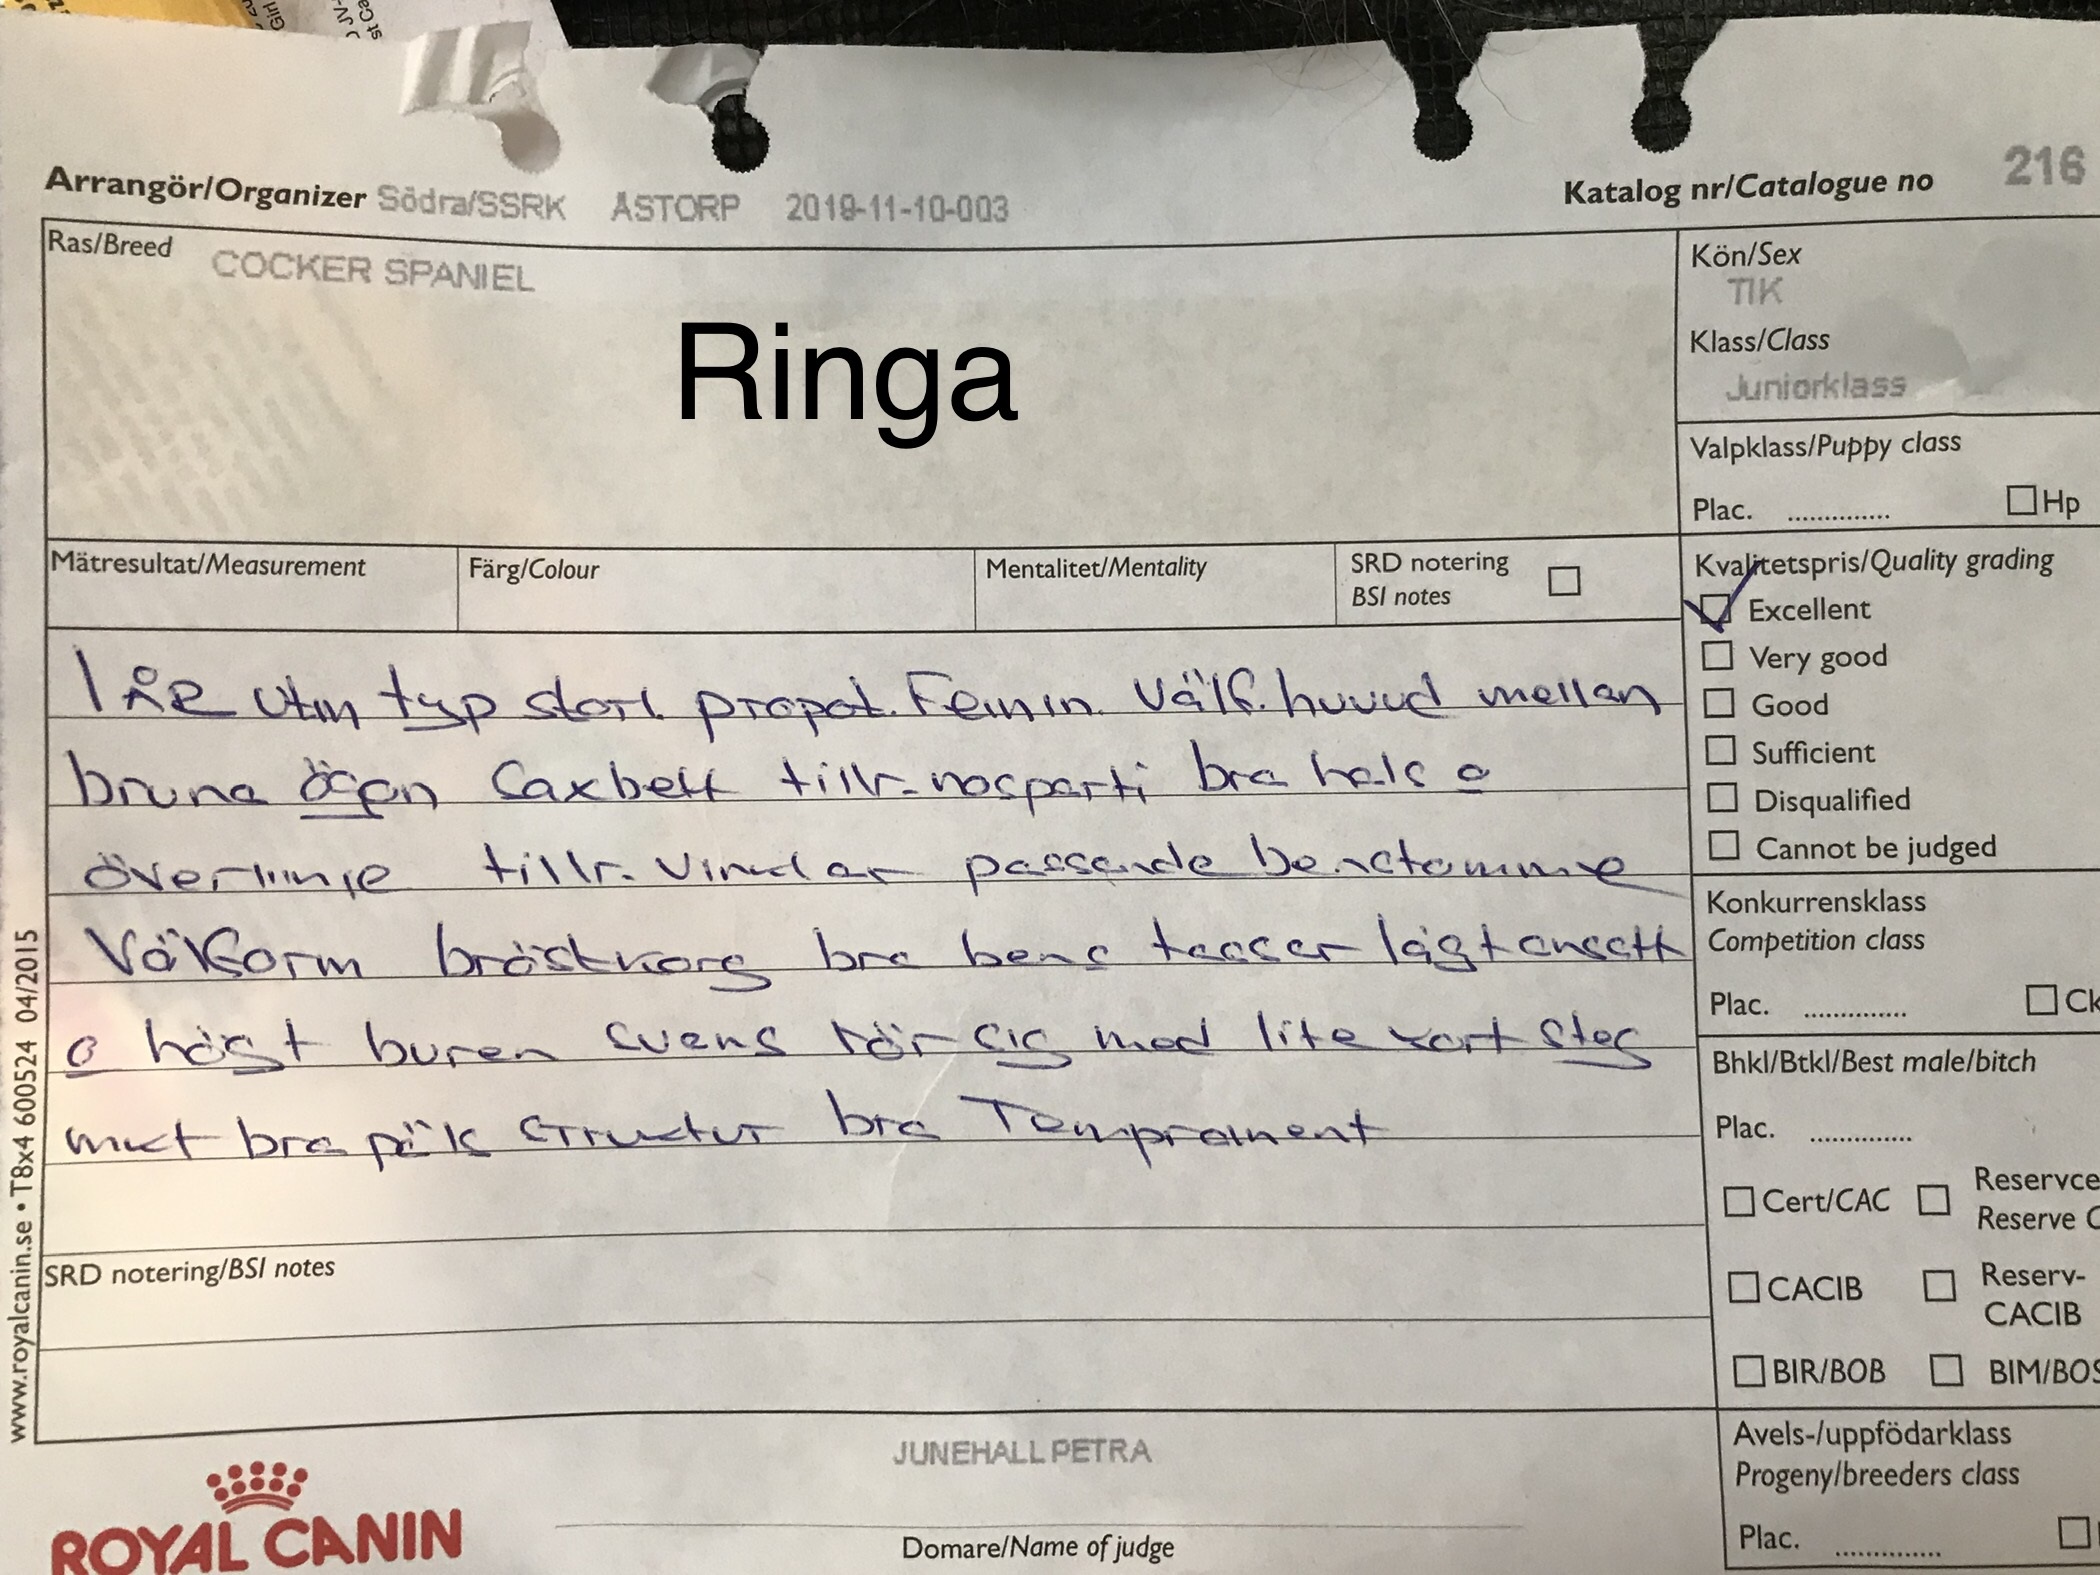 Arrangör/Organizer Södra/SSRK ÅSTORP 2019-11-10-003
Katalog nr/Catalogue no 216
Ras/Breed COCKER SPANIEL
Ringa
Kön/Sex
TIK
Klass/Class
Juniorklass
Valpklass/Puppy class
Plac. .............. Hp
Mätresultat/Measurement
Färg/Colour
Mentalitet/Mentality
SRD notering
BSI notes
Kvalitetspris/Quality grading
Excellent
Very good
Good
Sufficient
Disqualified
Cannot be judged
1 ÅR utm typ storl. propot. Feminin. Välf. huvud mellan
bruna ögon Saxbett tillr. nosparti bra hals o
överlinje tillr. vinklar passande benstomme
Välform bröstkorg bra bens tassar lågt ansatt
o högt buren svans rör sig med lite kort steg
mkt bra päls struktur bra Temprament
Konkurrensklass
Competition class
Plac. .............. Ck
Bhkl/Btkl/Best male/bitch
Plac. ..............
Cert/CAC Reservce
Reserve C
CACIB Reserv-
CACIB
BIR/BOB BIM/BOS
SRD notering/BSI notes
Avels-/uppfödarklass
Progeny/breeders class
Plac. ..............
JUNEHALL PETRA
Domare/Name of judge
ROYAL CANIN
www.royalcanin.se • T8x4 600524 04/2015